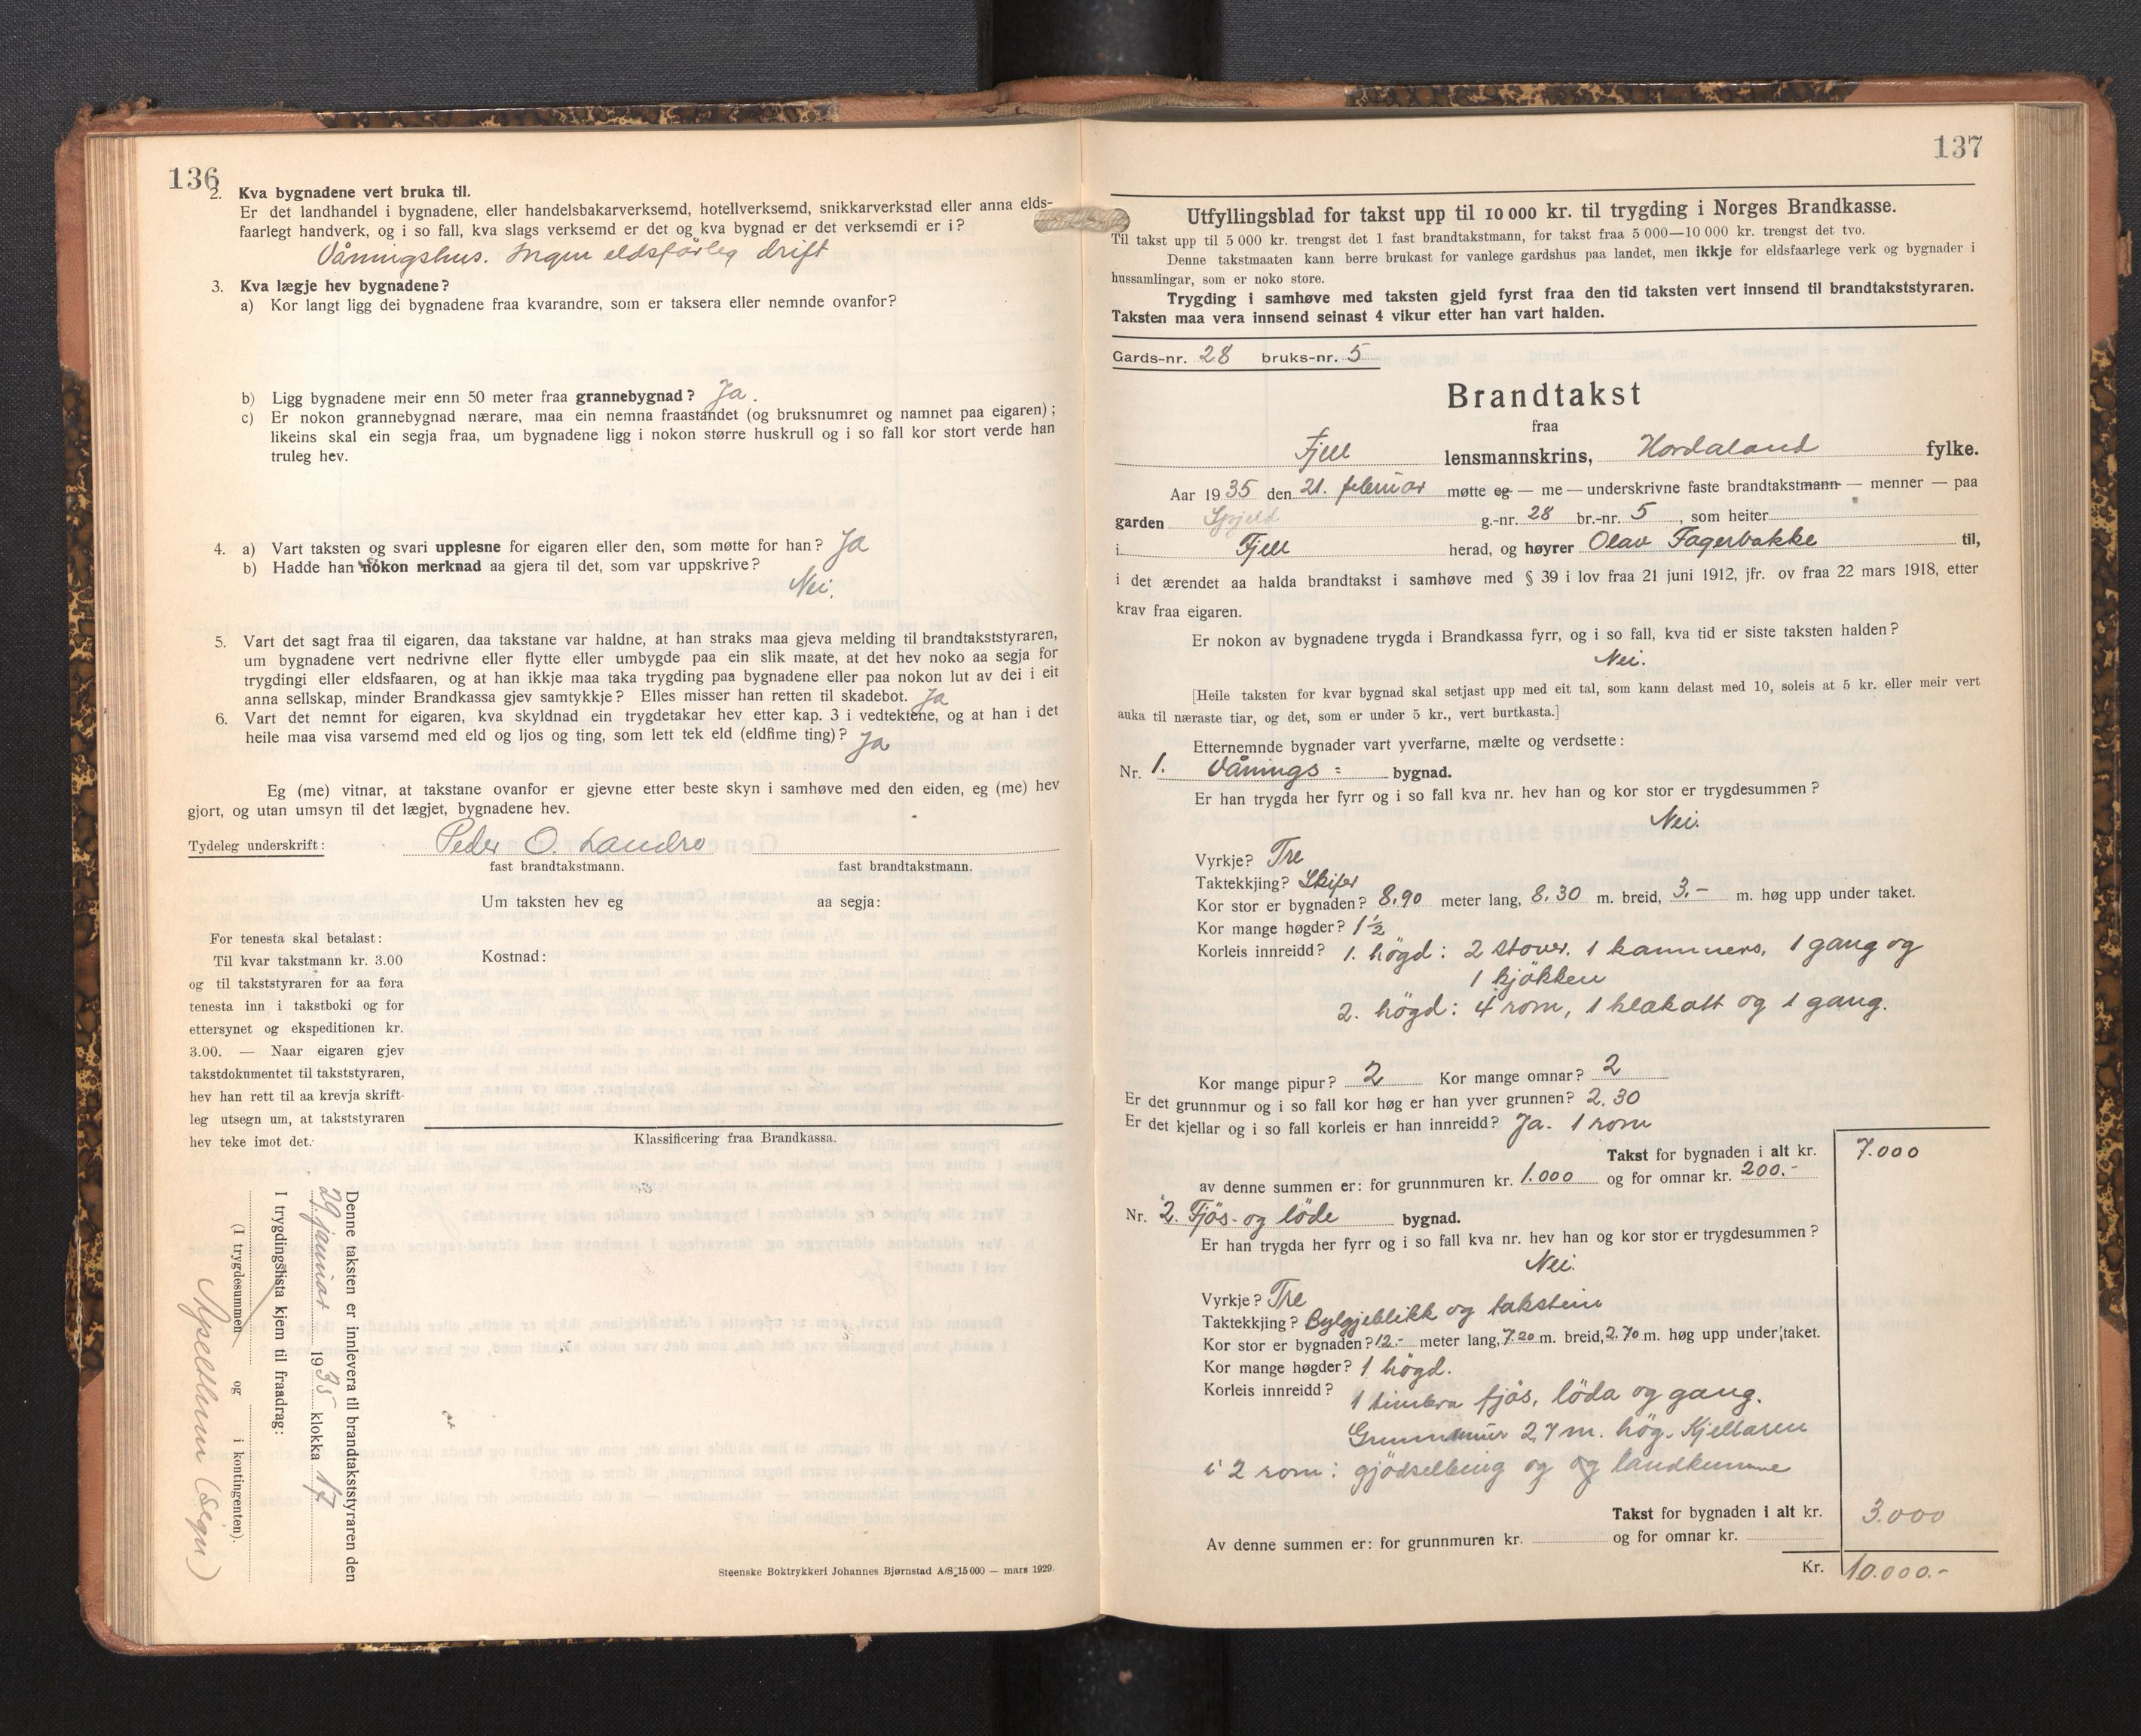 136
2. Kva bygnadene vert bruka til.
Er det landhandel i bygnadene, eller handelsbakarverksemd, hotellverksemd, snikkarverkstad eller anna elds-
faarlegt handverk, og i so fall, kva slags verksemd er det og kva bygnad er det verksemdi er i?
Våningshus. Ingen eldsfårleg drift
3. Kva lægje hev bygnadene?
a) Kor langt ligg dei bygnadene fraa kvarandre, som er taksera eller nemnde ovanfor?
b) Ligg bygnadene meir enn 50 meter fraa grannebygnad? Ja.
c) Er nokon grannebygnad nærare, maa ein nemna fraastandet (og bruksnumret og namnet paa eigaren);
likeins skal ein segja fraa, um bygnadene ligg i nokon større huskrull og i so fall kor stort verde han
truleg hev.
4. a) Vart taksten og svari upplesne for eigaren eller den, som møtte for han? Ja
b) Hadde han nokon merknad aa gjera til det, som var uppskrive?
Nei.
5. Vart det sagt fraa til eigaren, daa takstane var haldne, at han straks maa gjeva melding til brandtakststyraren,
um bygnadene vert nedrivne eller flytte eller umbygde paa ein slik maate, at det hev noko aa segja for
trygdingi eller eldsfaaren, og at han ikkje maa taka trygding paa bygnadene eller paa nokon lut av dei i eit
anna sellskap, minder Brandkassa gjev samtykkje? Elles misser han retten til skadebot. Ja
6. Vart det nemnt for eigaren, kva skyldnad ein trygdetakar hev etter kap. 3 i vedtektene, og at han i det
heile maa visa varsemd med eld og ljos og ting, som lett tek eld (eldfime ting)? Ja
Eg (me) vitnar, at takstane ovanfor er gjevne etter beste skyn i samhøve med den eiden, eg (me) hev
gjort, og utan umsyn til det lægjet, bygnadene hev.
Tydeleg underskrift: Peder O. Landro
fast brandtakstmann. fast brandtakstmann.
Um taksten hev eg aa segja:
For tenesta skal betalast:
Til kvar takstmann kr. 3.00
og til takststyraren for aa føra
tenesta inn i takstboki og for
ettersynet og ekspeditionen kr.
3.00. — Naar eigaren gjev
takstdokumentet til takststyraren,
hev han rett til aa krevja skrift-
leg utsegn um, at takststyraren
hev teke imot det.
Kostnad:
Klassificering fraa Brandkassa.
Denne taksten er innlevera til brandtakststyraren den
29. januar 1935 klokka 17
I trygdingslista kjem til fraadrag:
(I trygdesummen og i kontingenten).
(sign)
Steenske Boktrykkeri Johannes Bjørnstad A/S. 15 000 — mars 1929.
137
Utfyllingsblad for takst upp til 10 000 kr. til trygding i Norges Brandkasse.
Til takst upp til 5 000 kr. trengst det 1 fast brandtakstmann, for takst fraa 5 000—10 000 kr. trengst det tvo.
Denne takstmaaten kann berre brukast for vanlege gardshus paa landet, men ikkje for eldsfaarlege verk og bygnader i
hussamlingar, som er noko store.
Trygding i samhøve med taksten gjeld fyrst fraa den tid taksten vert innsend til brandtakststyraren.
Taksten maa vera innsend seinast 4 vikur etter han vart halden.
Gards-nr. 28 bruks-nr. 5
Brandtakst
fraa
Fjell lensmannskrins, Hordaland fylke.
Aar 1935 den 21. februar møtte eg — me — underskrivne faste brandtakstmann — menner — paa
garden Spjeld g.-nr. 28 br.-nr. 5, som heiter
i Fjell herad, og høyrer Olav Fagerbakke til,
i det ærendet aa halda brandtakst i samhøve med § 39 i lov fraa 21 juni 1912, jfr. ov fraa 22 mars 1918, etter
krav fraa eigaren.
Er nokon av bygnadene trygda i Brandkassa fyrr, og i so fall, kva tid er siste taksten halden?
Nei.
[Heile taksten for kvar bygnad skal setjast upp med eit tal, som kann delast med 10, soleis at 5 kr. eller meir vert
auka til næraste tiar, og det, som er under 5 kr., vert burtkasta.]
Etternemnde bygnader vart yverfarne, mælte og verdsette:
Nr. 1. Vånings = bygnad.
Er han trygda her fyrr og i so fall kva nr. hev han og kor stor er trygdesummen?
Nei.
Vyrkje? Tre
Taktekkjing? Skifer
Kor stor er bygnaden? 8,90 meter lang, 8,30 m. breid, 3.- m. høg upp under taket.
Kor mange høgder? 1½
Korleis innreidd? 1. högd: 2 stover, 1 kammers, 1 gang og
1 kjökken
2. högd: 4 rom, 1 klækott og 1 gang.
Kor mange pipur? 2 Kor mange omnar? 2
Er det grunnmur og i so fall kor høg er han yver grunnen? 2,30
Er det kjellar og i so fall korleis er han innreidd? Ja. 1 rom
Takst for bygnaden i alt kr. 7.000
av denne summen er: for grunnmuren kr. 1.000 og for omnar kr. 200.-
Nr. 2. Fjös- og löde bygnad.
Er han trygda her fyrr og i so fall kva nr. hev han og kor stor er trygdesummen?
Nei.
Vyrkje? Tre
Taktekkjing? Bylgjeblikk og takstein
Kor stor er bygnaden? 12.- meter lang, 7.20 m. breid, 2.70 m. høg upp under taket.
Kor mange høgder? 1 högd.
Korleis innreidd? 1 timbra fjös, löda og gang.
Grunnmur 2,7 m. hög. Kjellaren
i 2 rom: gjödselbing og og landkumme
Takst for bygnaden i alt kr. 3.000
Av denne summen er: for grunnmuren kr. og for omnar kr.
Kr. 10.000.-